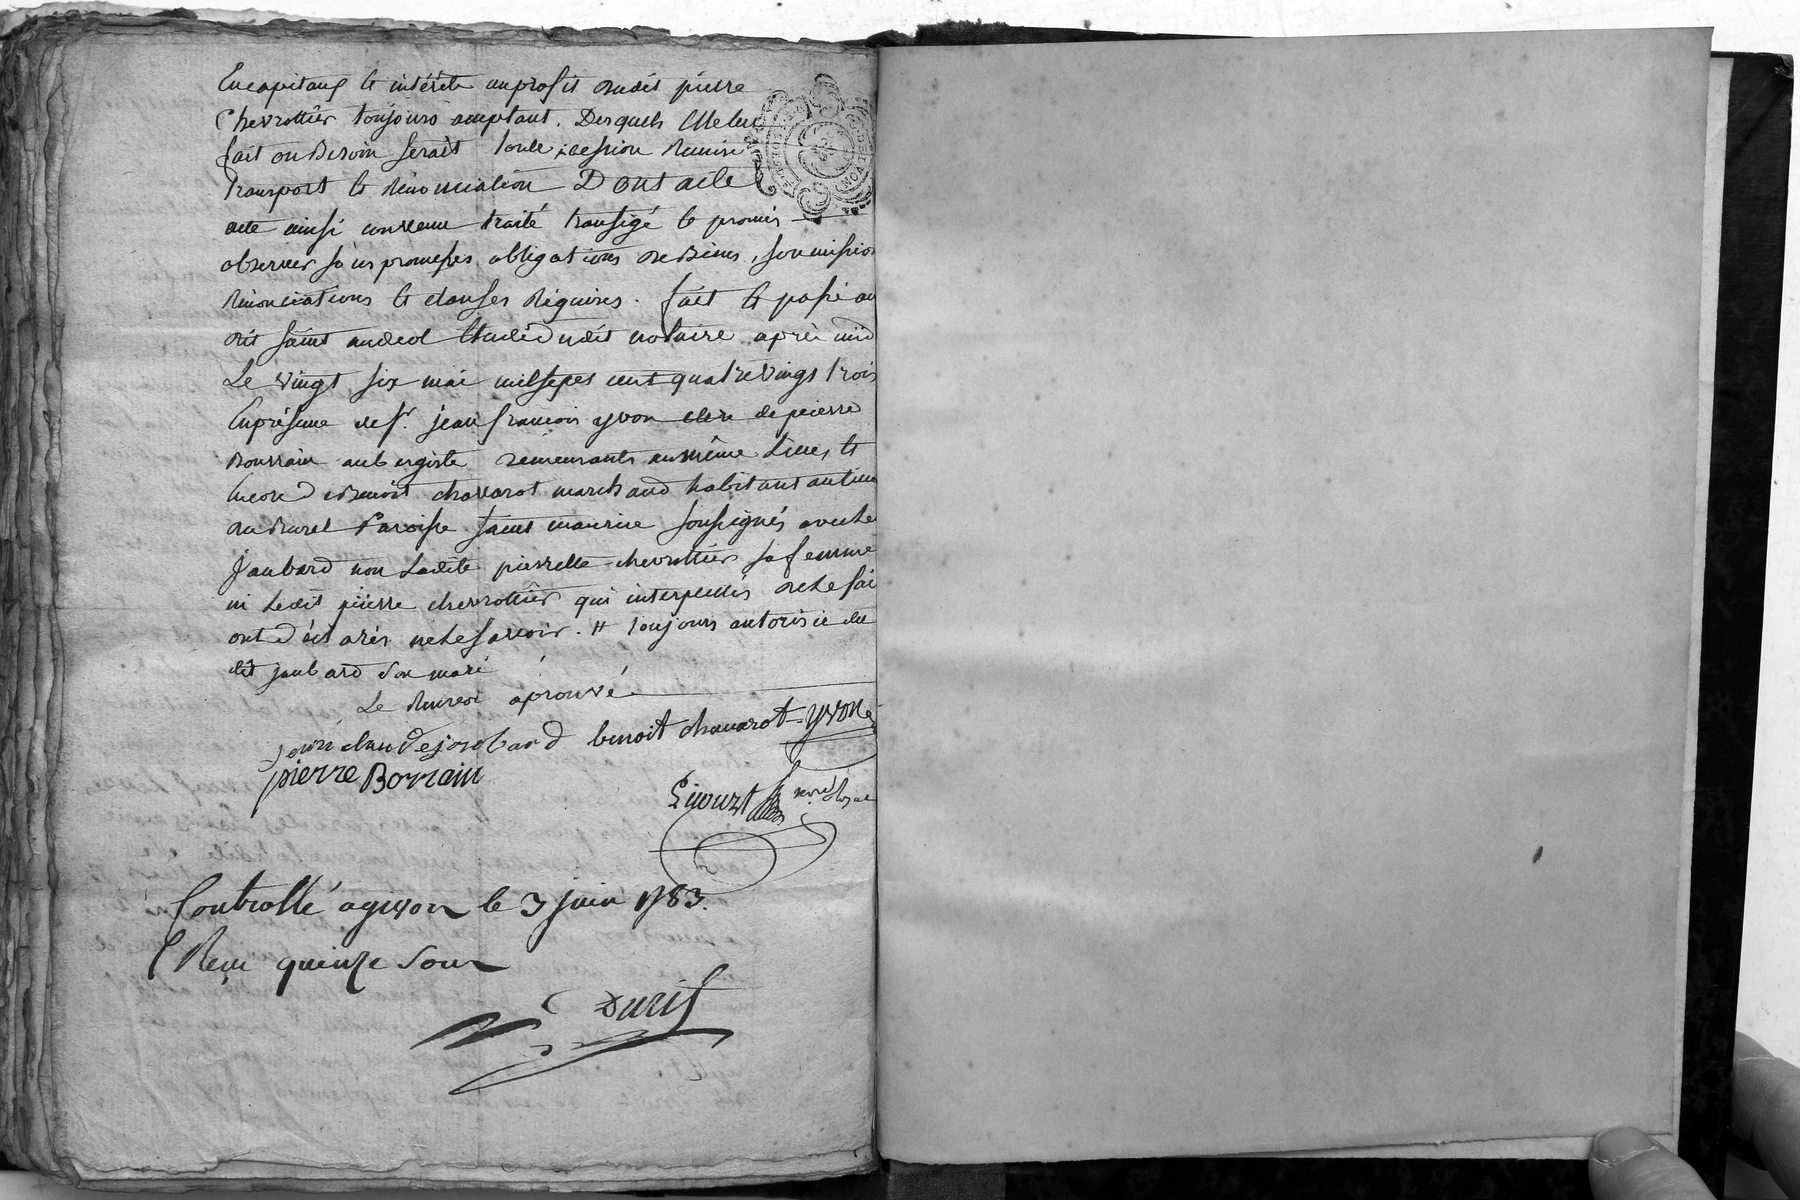 En capitaux & intérêts au profit dudit pierre
Chevrottier toujours acceptant. Desquels Elle luy
fait ou Besoin serait toute cession Remise
Transport & Rénonciation Dont acte
acte ainsi convenu traité transigé & promis
observer sous promesses obligations de Biens, soumission
Rénonciations & clauses Réquises. fait & passé au
dit saint andéol Etude dudit notaire après midi
Le vingt six mai mil sept cent quatre vings trois
En présence de sr. jean françois yvon clerc de pierre
Bourrain aubergiste demeurants au même Lieu, &
Encore Benoit chavarot marchand habitant au lieu
du Burel Paroisse saint maurice soussignés avec le
Jaubard non Ladite pierrette chevrottier sa femme
ni Ledit pierre chevrottier qui interpellés de le faire
ont dit ne le savoir. # toujours autorisée du
dit jaubard son mari
Le Renvoi aprouvé
jean claude josobard benoit chauarot yvon
pierre Borrain
nore Royal
Controllé a givor le 3 juin 1783.
Reçu quinze sous